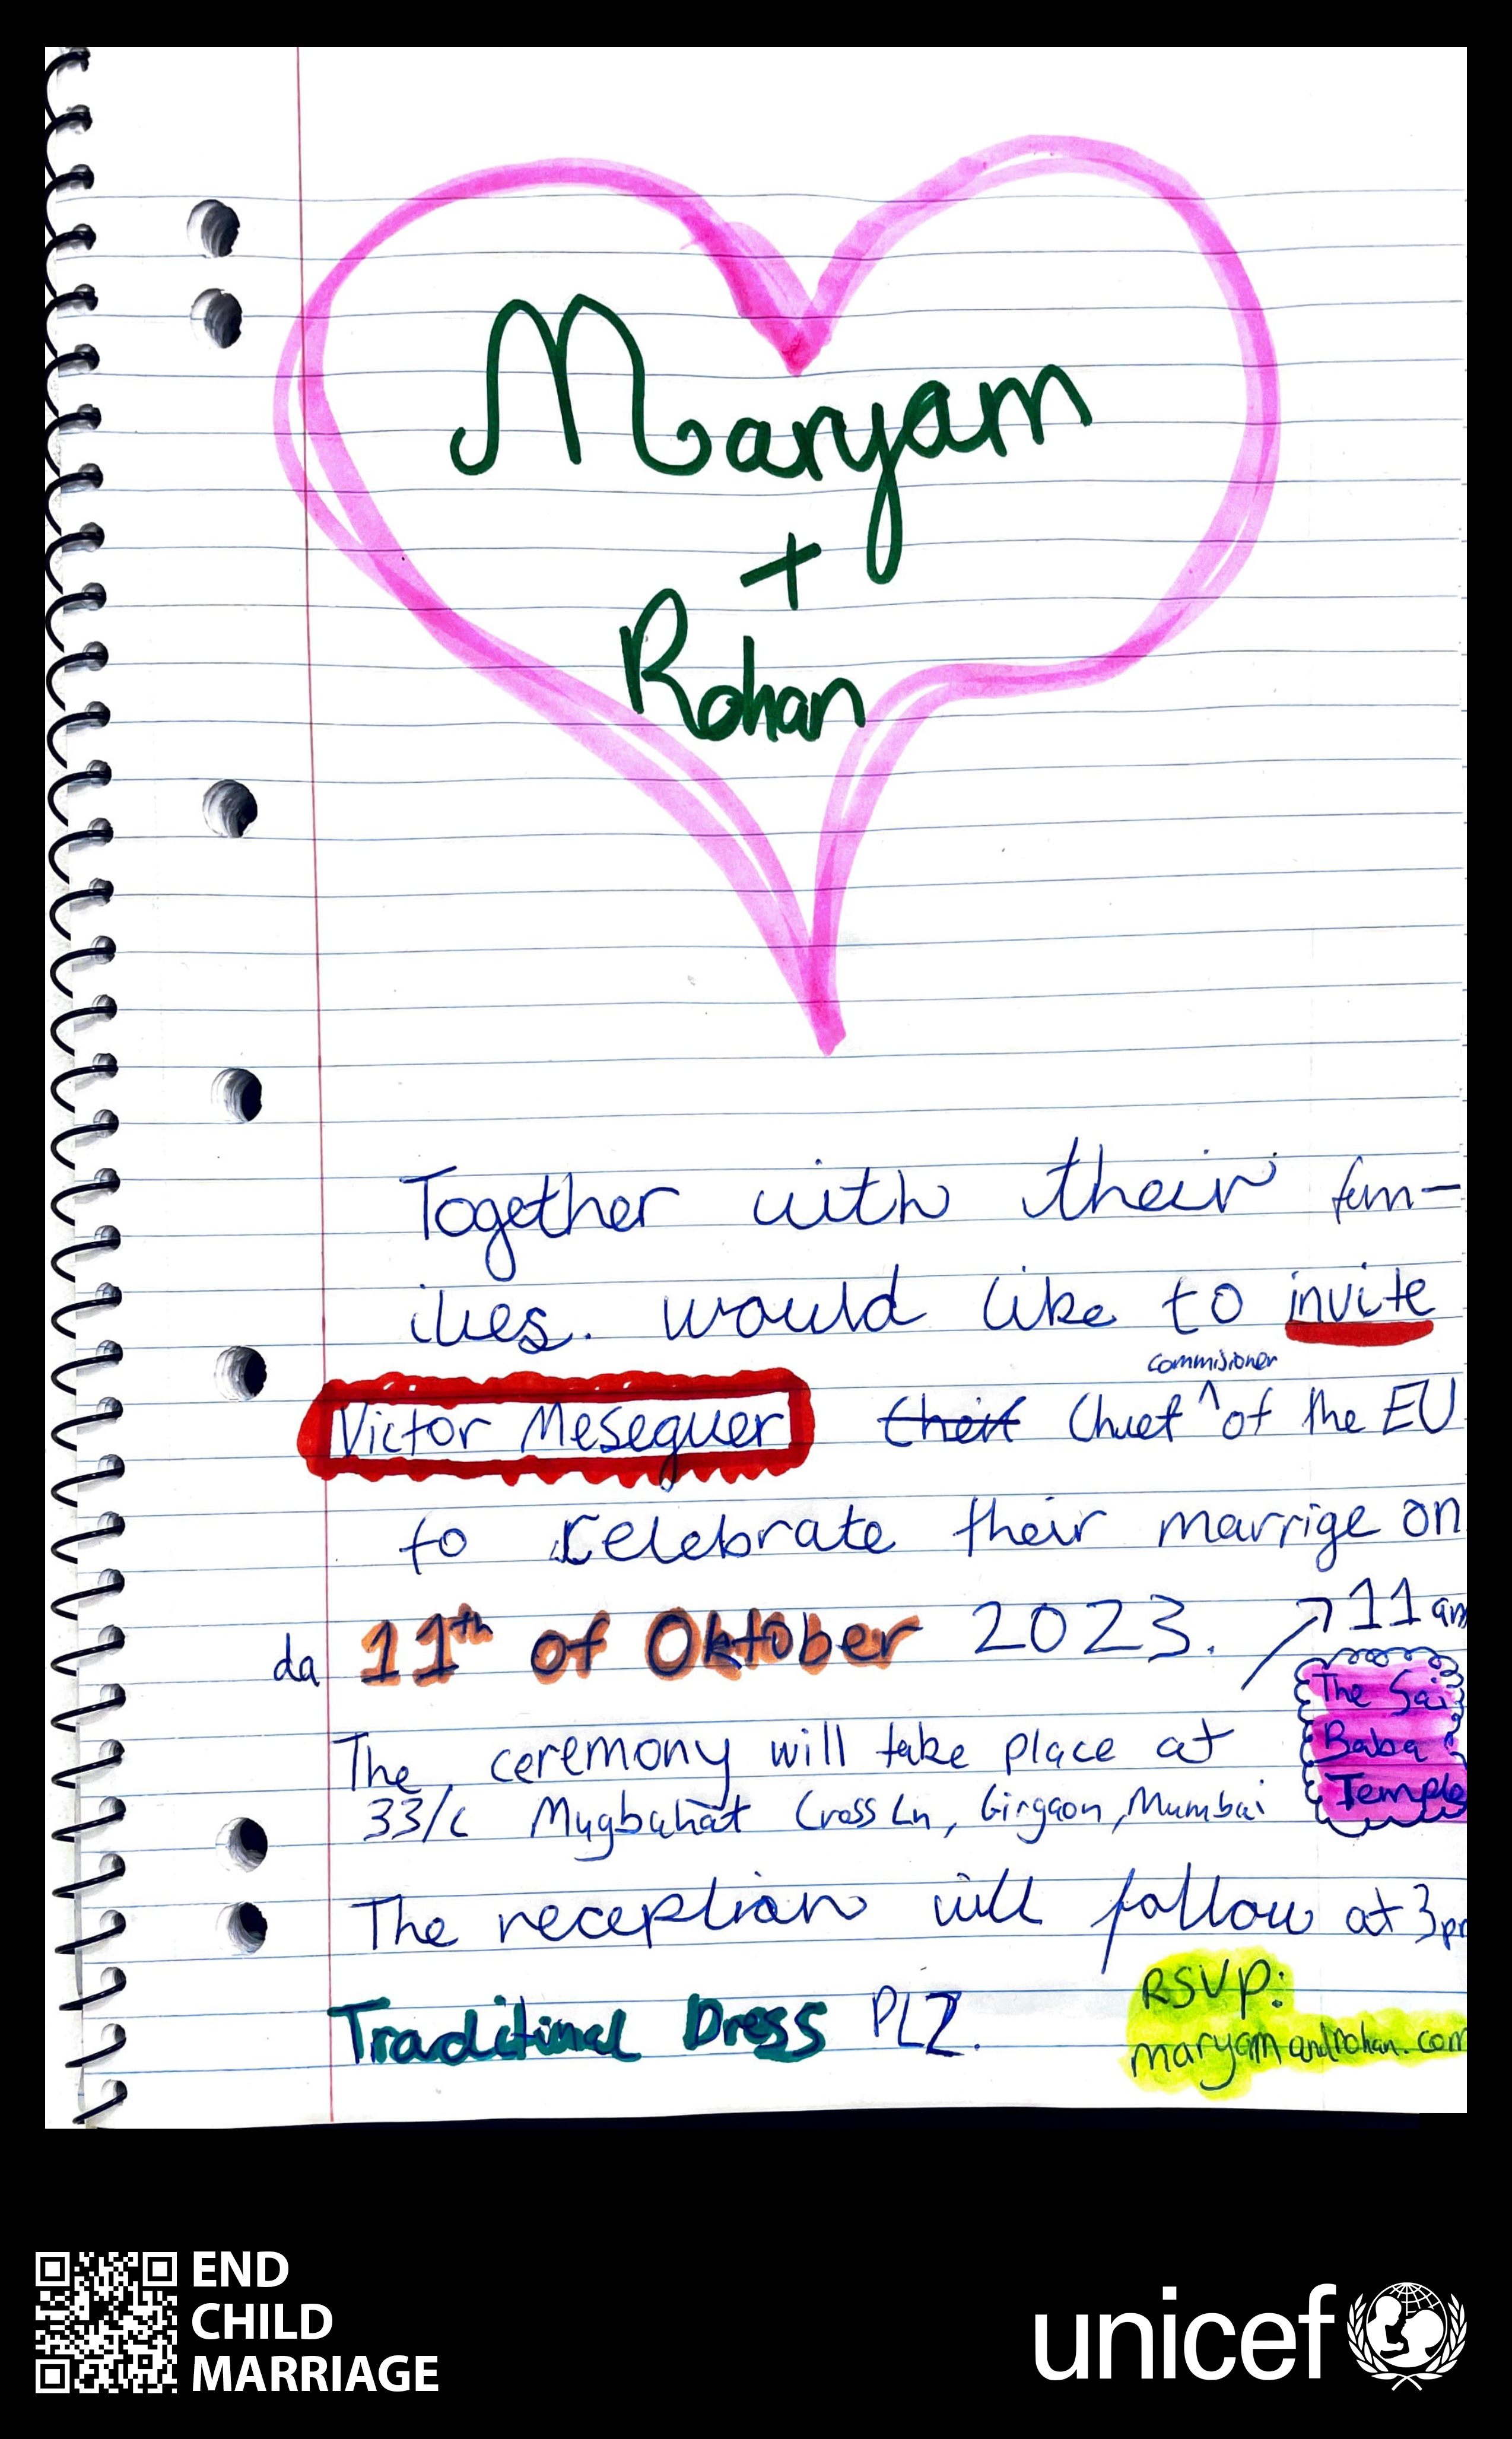 Maryam
+
Rohan
Together with their fam-
ilies. would like to invite
commisioner
Victor Meseguer Chief ^ of the EU
to celebrate their marrige on
da 11th of Oktober 2023. 11 am
The Sai
Baba
Temple
The ceremony will take place at
33/C Mugbahat Cross Ln, Girgaon, Mumbai
The reception will follow at 3pm
Traditional Dress PLZ.
RSVP:
maryamandrohan.com
END
CHILD
MARRIAGE
unicef